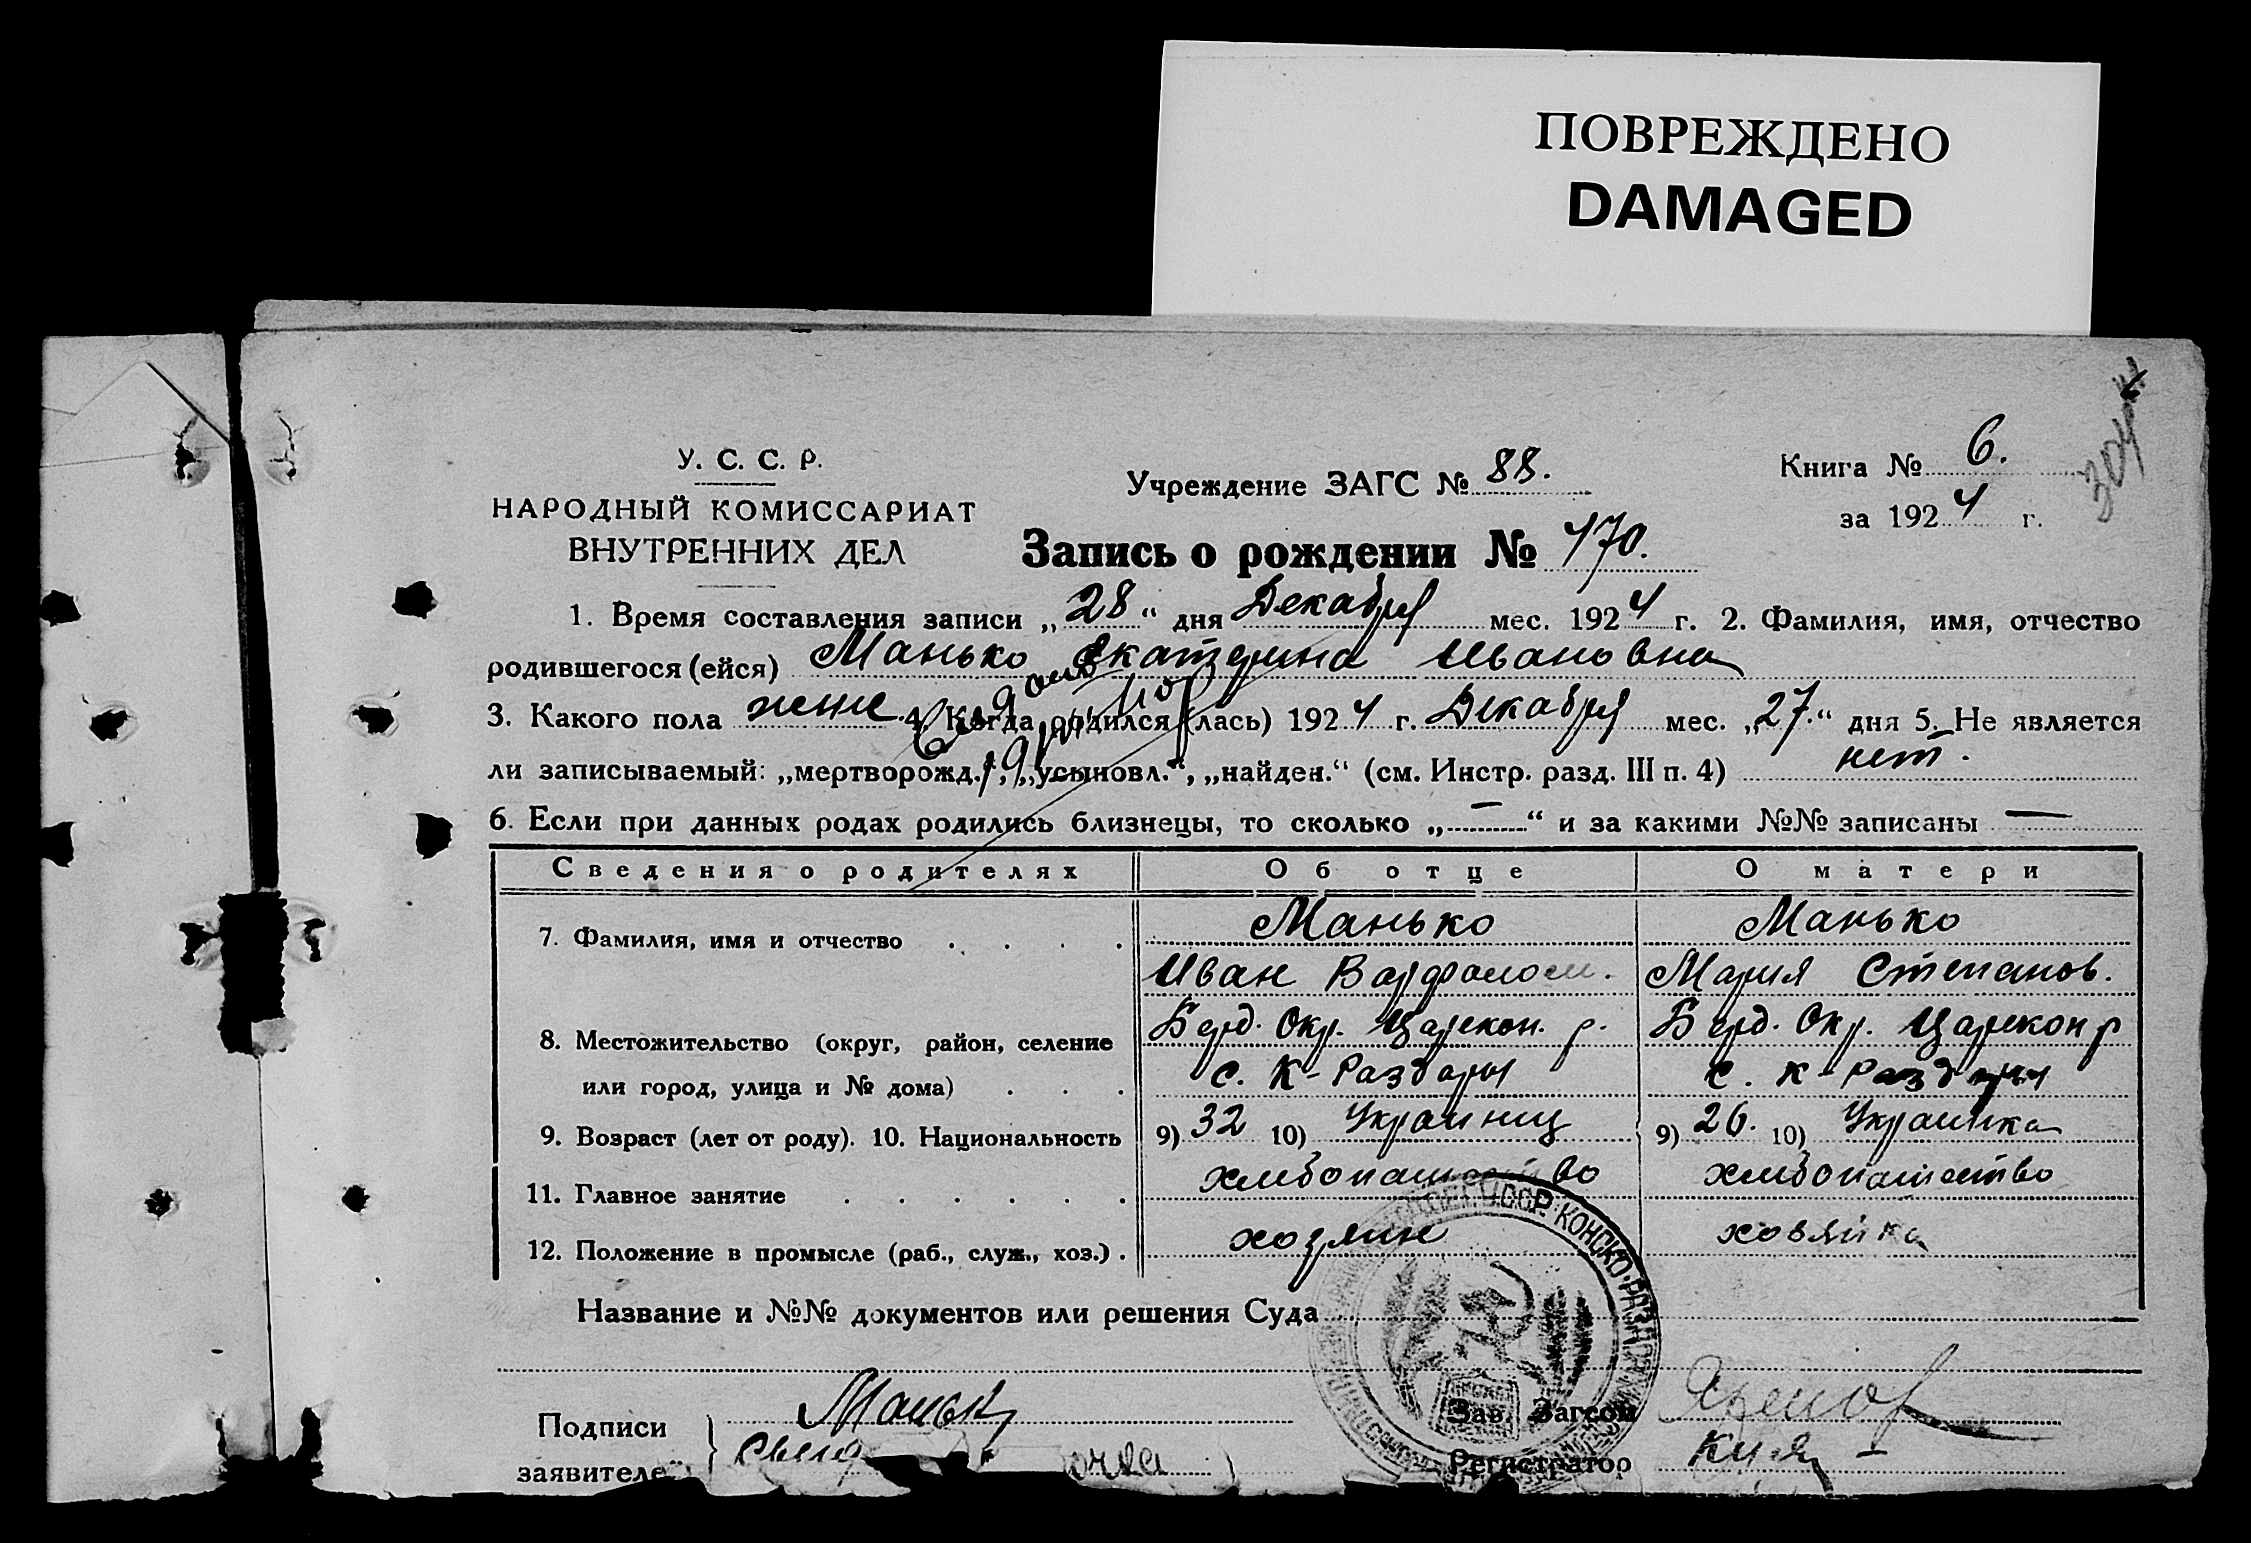 ПОВРЕЖДЕНО
DAMAGED
У. С. С. Р.
НАРОДНЫЙ КОМИССАРИАТ
ВНУТРЕННИХ ДЕЛ
Учреждение ЗАГС № 88.
Книга № 6.
за 1924 г.
Запись о рождении № 470.
1. Время составления записи „28“ дня Декабря мес. 1924 г. 2. Фамилия, имя, отчество
родившегося (ейся) Манько Екатерина Ивановна
3. Какого пола женс. 4. Когда родился (лась) 1924 г. Декабря мес. „27.“ дня 5. Не является
ли записываемый: „мертворожд.“, „усыновл.“, „найден.“ (см. Инстр. разд. III п. 4) нет.
6. Если при данных родах родились близнецы, то сколько „—“ и за какими №№ записаны —
Сведения о родителях Об отце О матери
7. Фамилия, имя и отчество Манько Манько
Иван Варфолом. Мария Степанов.
8. Местожительство (округ, район, селение Берд. Окр. Царекон. р. Берд. Окр. Царекон р
или город, улица и № дома) с. К-Раздоры с. К-Раздоры
9. Возраст (лет от роду). 10. Национальность 9) 32 10) Украинец 9) 26. 10) Украинка
11. Главное занятие хлебопашество хлебопашество
12. Положение в промысле (раб., служ., хоз.) хозяин хозяйка
Название и №№ документов или решения Суда
Подписи Манько Зав. Загсом
заявителе Регистратор